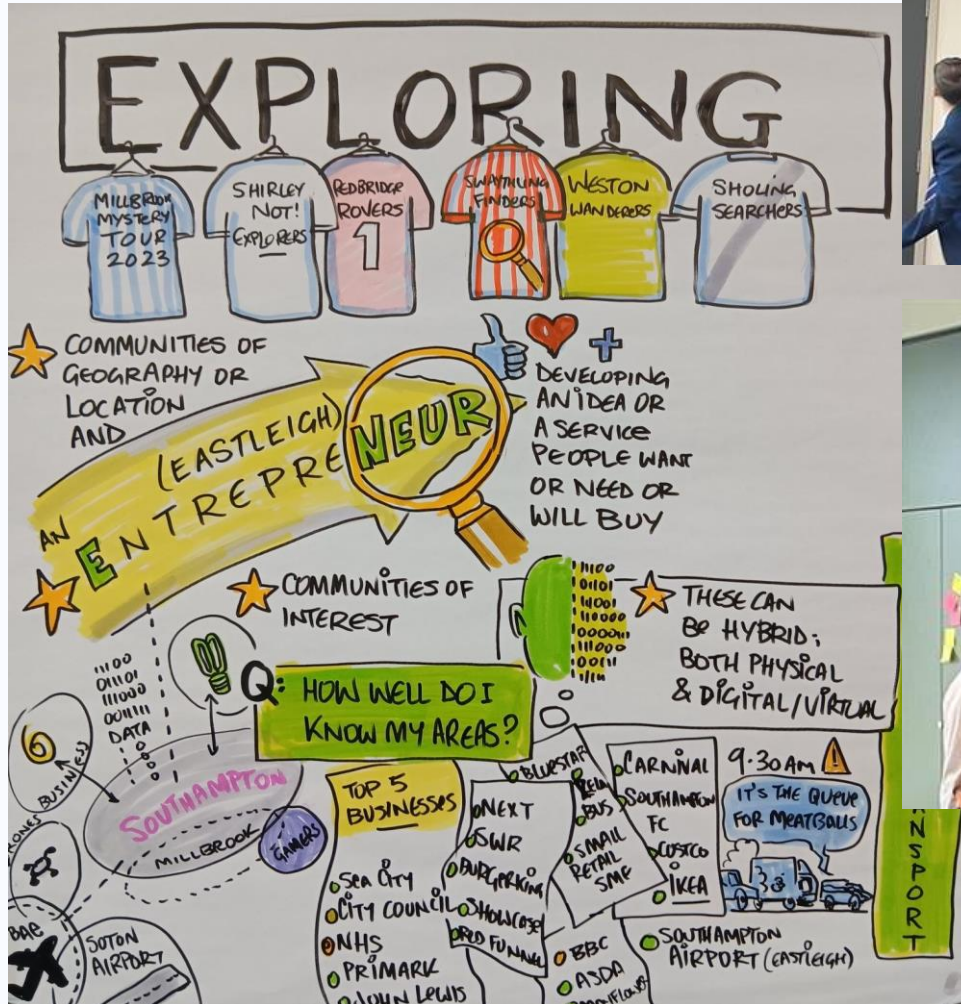 EXPLORING
MILLBROOK
MYSTERY
TOUR
2023
SHIRLEY
NOT!
EXPLORERS
REDBRIDGE
ROVERS
1
SWAYTHLING
FINDERS
WESTON
WANDERERS
SHOLING
SEARCHERS
COMMUNITIES OF
GEOGRAPHY OR
LOCATION
AND
AN
(EASTLEIGH)
ENTREPRENEUR
DEVELOPING
AN IDEA OR
A SERVICE
PEOPLE WANT
OR NEED OR
WILL BUY
COMMUNITIES OF
INTEREST
11100
01101
11001
110000
000011
111000
00111
THESE CAN
BE HYBRID;
BOTH PHYSICAL
& DIGITAL/VIRTUAL
Q: HOW WELL DO I
KNOW MY AREAS?
11100
01101
111000
001111
DATA
BUSINESS
SOUTHAMPTON
MILLBROOK
GAMERS
BAE
SOTON
AIRPORT
TOP 5
BUSINESSES
SEA CITY
CITY COUNCIL
NHS
PRIMARK
JOHN LEWIS
NEXT
SWR
BURGERKING
SHOWCASE
RED FUNNEL
BLUESTAR
BUS
SMALL
RETAIL
SME
BBC
ASDA
CARNIVAL
SOUTHAMPTON
FC
COSTCO
IKEA
9.30AM
IT'S THE QUEUE
FOR MEATBALLS
SOUTHAMPTON
AIRPORT (EASTLEIGH)
NSPORT